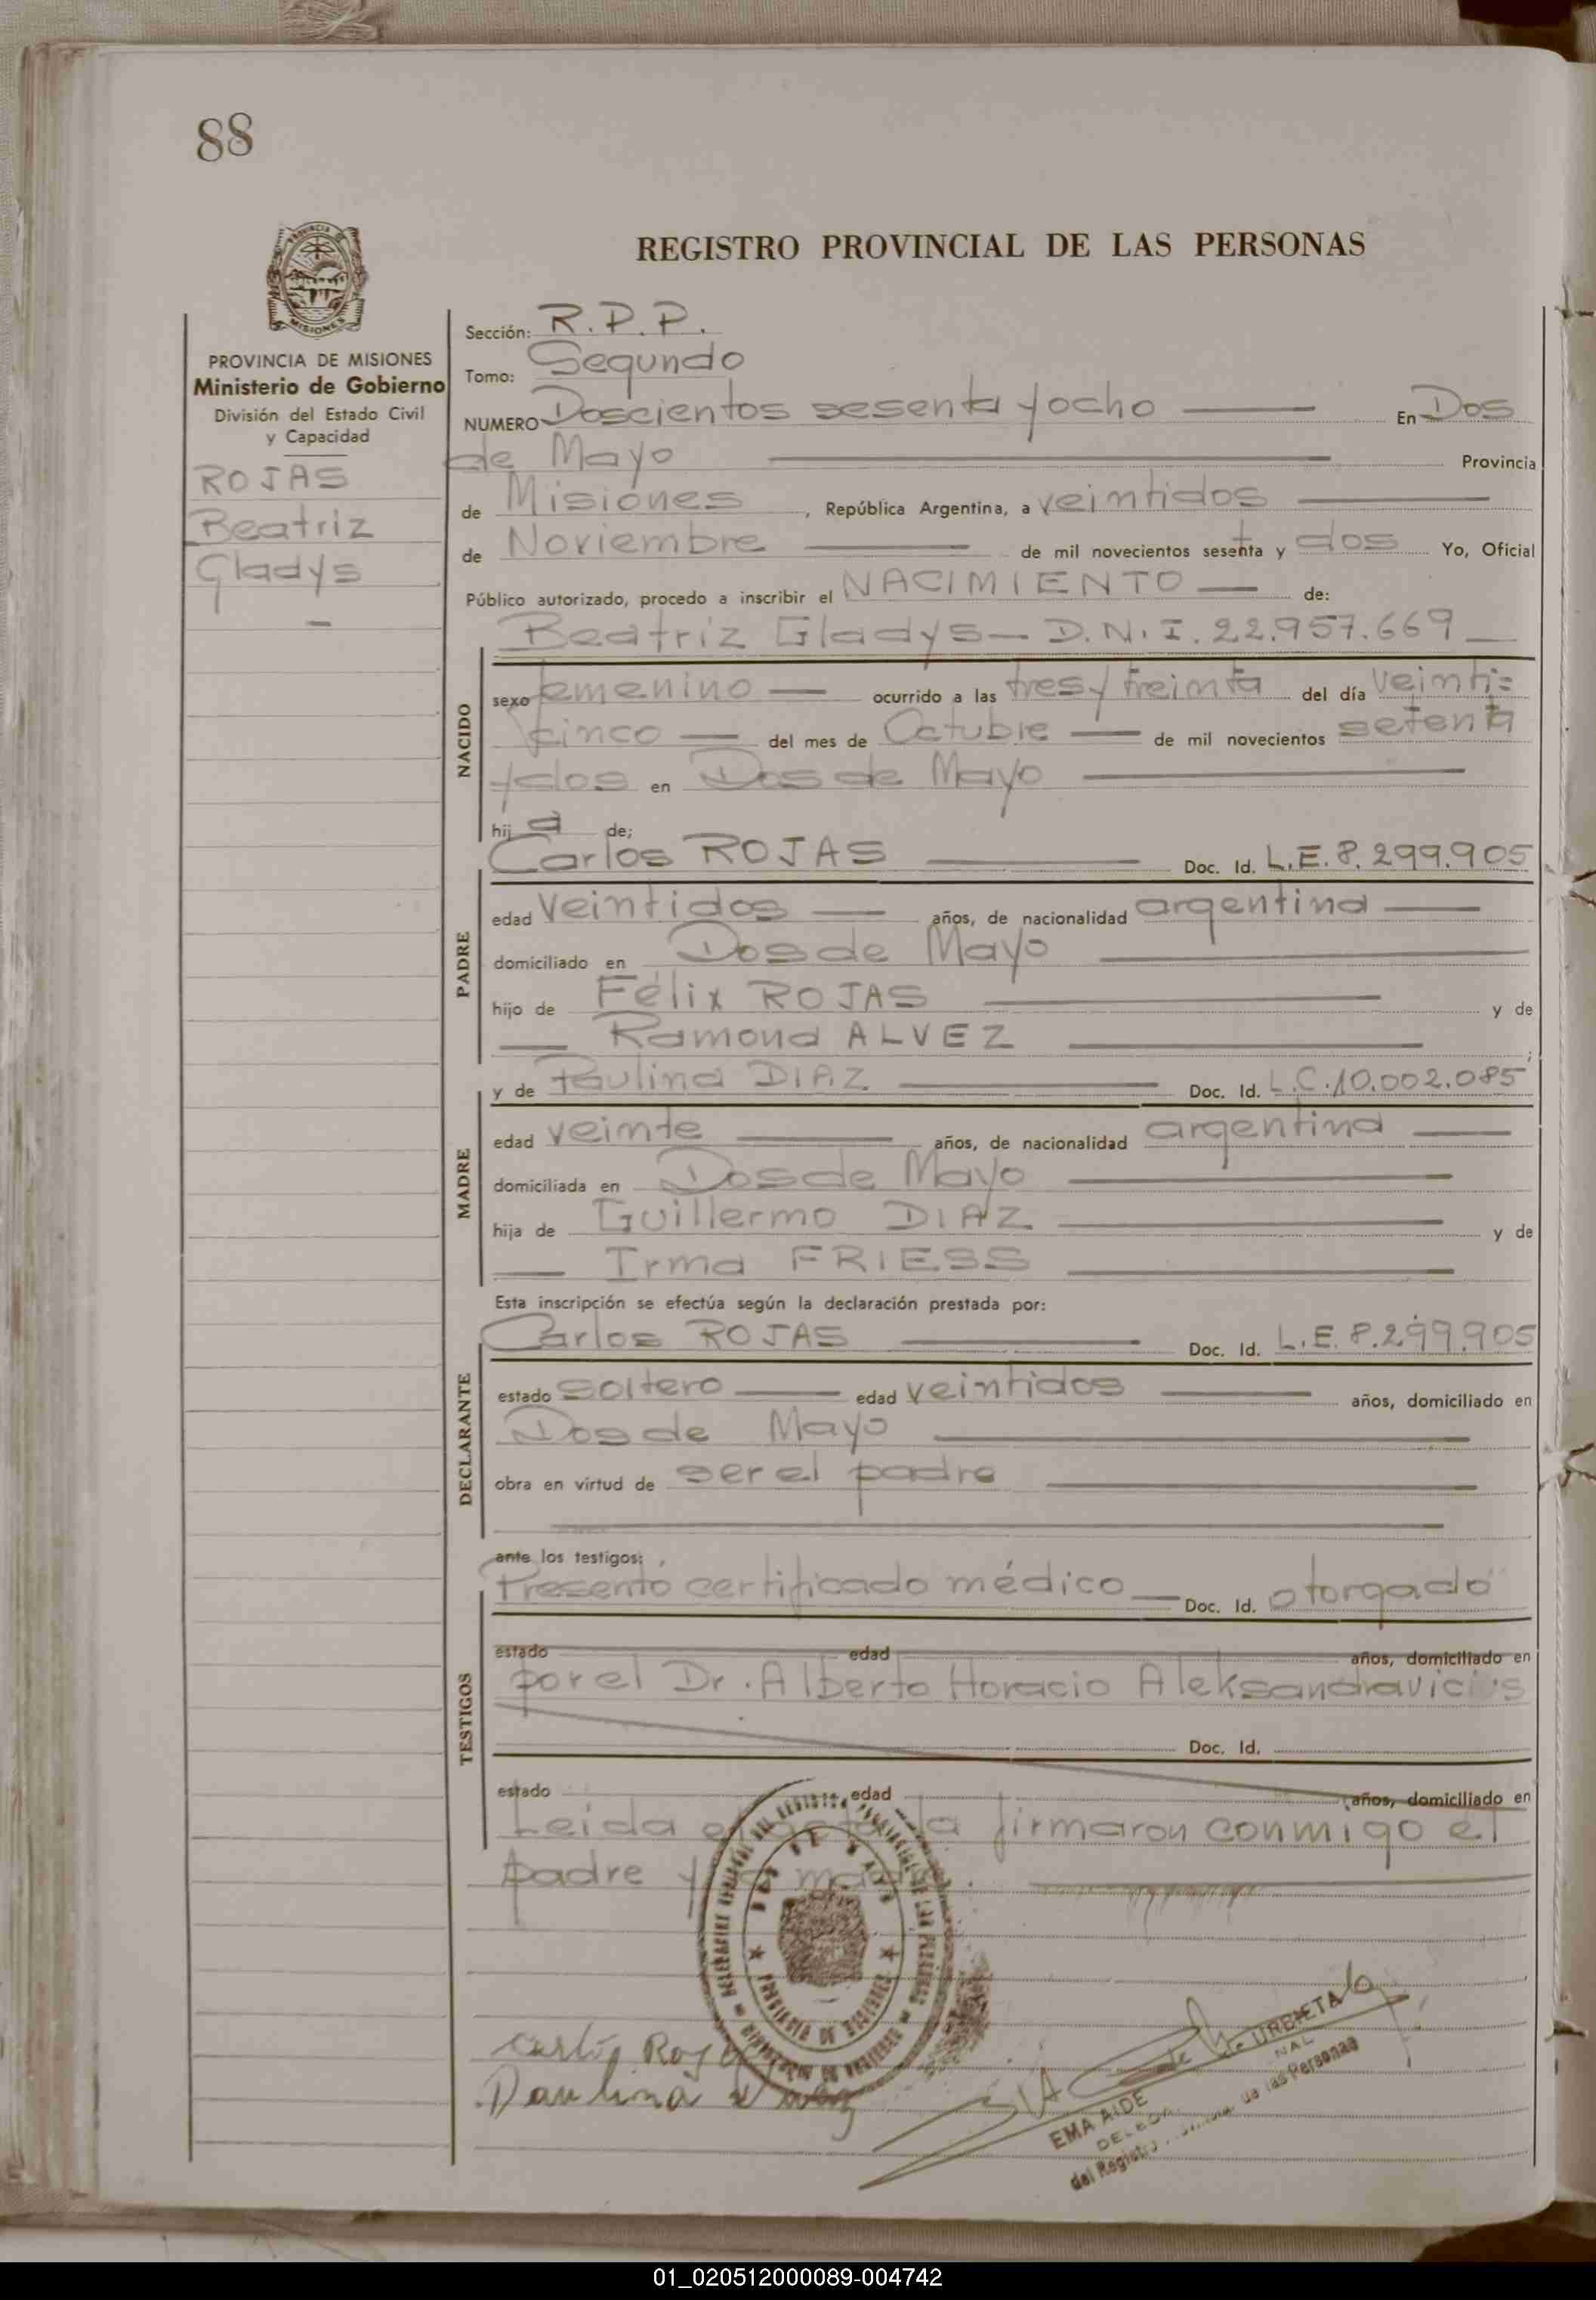 88
REGISTRO PROVINCIAL DE LAS PERSONAS
MISIONES
PROVINCIA DE MISIONES
Ministerio de Gobierno
División del Estado Civil
y Capacidad
ROJAS
Beatriz
Gladys
Sección: R.P.P.
Tomo: Segundo
NUMERO Doscientos sesenta y ocho En Dos
de Mayo Provincia
de Misiones, República Argentina, a veintidos
de Noviembre de mil novecientos sesenta y dos Yo, Oficial
Público autorizado, procedo a inscribir el NACIMIENTO de:
Beatriz Gladys - D.N.I. 22.957.669
NACIDO
sexo femenino ocurrido a las tres y treinta del día veinti=
cinco del mes de Octubre de mil novecientos setenta
y dos en Dos de Mayo
hij a de;
Carlos ROJAS Doc. Id. L.E. 8.299.905
PADRE
edad veintidos años, de nacionalidad argentina
domiciliado en Dos de Mayo
hijo de Félix ROJAS y de
Ramona ALVEZ ;
y de Paulina DIAZ Doc. Id. L.C. 10.002.085
MADRE
edad veinte años, de nacionalidad argentina
domiciliada en Dos de Mayo
hija de Guillermo DIAZ y de
Irma FRIESS
Esta inscripción se efectúa según la declaración prestada por:
Carlos ROJAS Doc. Id. L.E. 8.299.905
DECLARANTE
estado soltero edad veintidos años, domiciliado en
Dos de Mayo
obra en virtud de ser el padre
ante los testigos:
Presento certificado médico Doc. Id. otorgado
TESTIGOS
estado edad años, domiciliado en
por el Dr. Alberto Horacio Aleksandravicius
Doc. Id.
estado edad años, domiciliado en
Leida el acta la firmaron conmigo el
padre y la madre.
DOS DE MAYO
PROVINCIA DE MISIONES
Carlos Rojas
Paulina
EMA AIDE de URBIETA
del Registro de las Personas
01_020512000089-004742